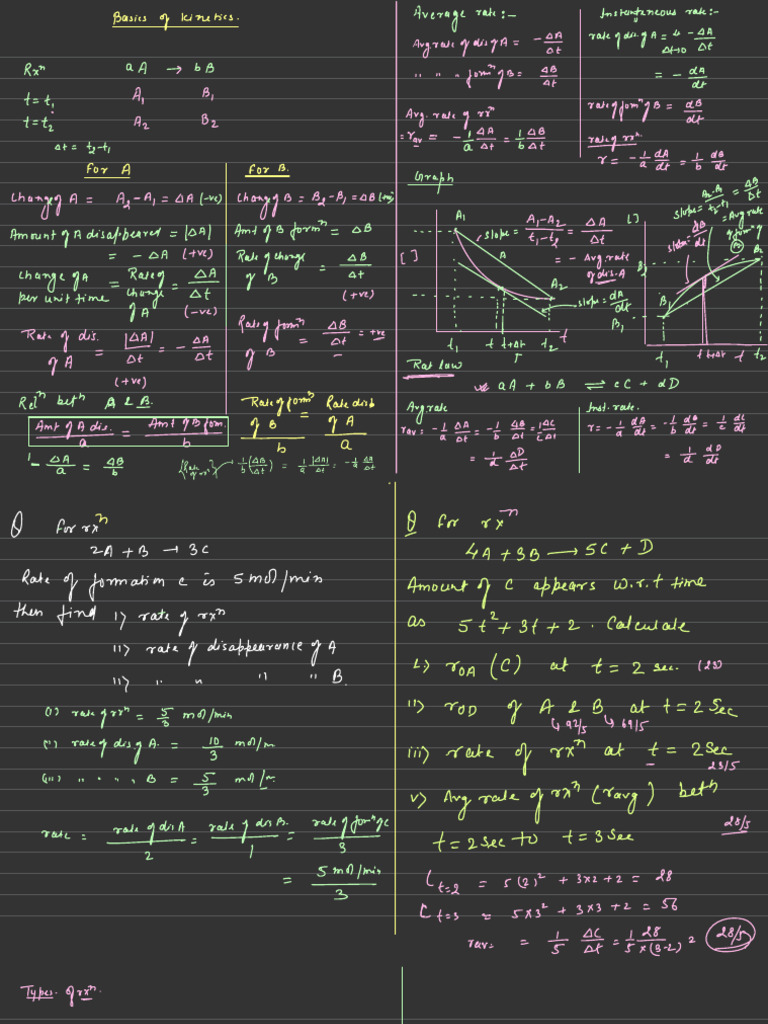 Basics of kinetics.
Rxⁿ aA → bB
t = t₁ A₁ B₁
t = t₂ A₂ B₂
Δt = t₂-t₁
for A
Change of A = A₂-A₁ = ΔA (-ve)
Amount of A disappeared = |ΔA|
= -ΔA (+ve)
Change of A per unit time = Rate of change of A = ΔA/Δt (-ve)
Rate of dis. of A = |ΔA|/Δt = -ΔA/Δt
(+ve)
for B.
Change of B = B₂-B₁ = ΔB
Amt of B formⁿ = ΔB
Rate of change of B = ΔB/Δt
(+ve)
Rate of formⁿ of B = ΔB/Δt = +ve
Relⁿ betⁿ A & B.
Amt of A dis./a = Amt of B form./b
-ΔA/a = ΔB/b
Rate of formⁿ of B/b = Rate disb of A/a
1/b (ΔB/Δt) = 1/a |ΔA|/Δt = -1/a ΔA/Δt
Average rate:-
Avg rate of dis of A = -ΔA/Δt
" " " formⁿ of B = ΔB/Δt
Avg. rate of rxⁿ
= rav = -1/a ΔA/Δt = 1/b ΔB/Δt
Instantaneous rate:-
rate of dis. of A = Δt→0 -ΔA/Δt
= -dA/dt
rate of formⁿ of B = dB/dt
rate of rxⁿ
r = -1/a dA/dt = 1/b dB/dt
Graph
A₁
slope = A₁-A₂/t₁-t₂ = ΔA/Δt
= - Avg rate of dis. A
[ ]
A
A₂
slope = dA/dt
t₁ t t+Δt t₂ t
T
B₂-B₁/t₂-t₁ = ΔB/Δt
slope =
= Avg rate of form of B
slope = dB/dt
[ ]
B₂
B₁
B₁
t₁ t t+Δt t t₂
Rat law
aA + bB ⇌ cC + dD
Avg rate
rav = -1/a ΔA/Δt = -1/b ΔB/Δt = 1/c ΔC/Δt
= 1/d ΔD/Δt
Inst. rate.
r = -1/a dA/dt = -1/b dB/dt = 1/c dC/dt
= 1/d dD/dt
Q for rxⁿ
2A + B → 3C
Rate of formation c is 5 mol/min
then find i) rate of rxⁿ
ii) rate of disappearance of A
ii) " " " " B.
(i) rate of rxⁿ = 5/3 mol/min
(ii) rate of dis of A. = 10/3 mol/m
(iii) " " " " B = 5/3 mol/m
rate = rate of dis A/2 = rate of dis B./1 = rate of formⁿ of C/3
= 5 mol/min/3
Types of rxⁿ.
Q for rxⁿ
4A + 3B → 5C + D
Amount of C appears w.r.t time
as 5t² + 3t + 2. Calculate
i) rOA (C) at t = 2 sec. (23)
ii) rOD of A & B at t = 2 Sec
↳ 92/5 ↳ 69/5
iii) rate of rxⁿ at t = 2Sec
23/5
v) Avg rate of rxⁿ (ravg) betⁿ
t = 2 sec to t = 3 sec
28/5
C t=2 = 5(2)² + 3×2 + 2 = 28
C t=3 = 5×3² + 3×3 + 2 = 56
rav = 1/5 ΔC/Δt = 1/5 28/×(3-2) = 28/5